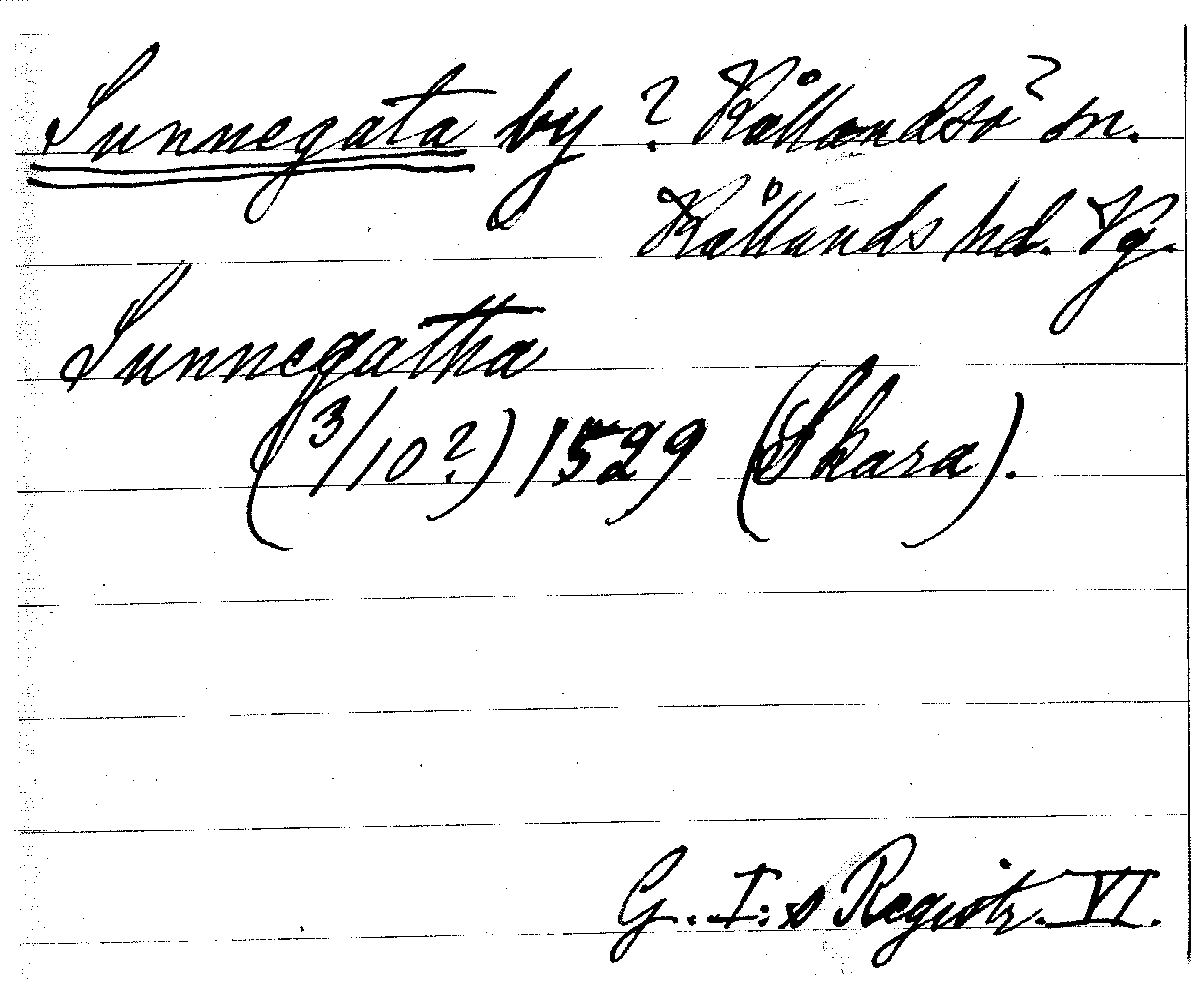 Sunnegata by ? Kållandsö? sn.
Kållands hd. Vg.
Sunnegatha
(3/10?) 1529 (Skara).
G. I:s Registr. VI.